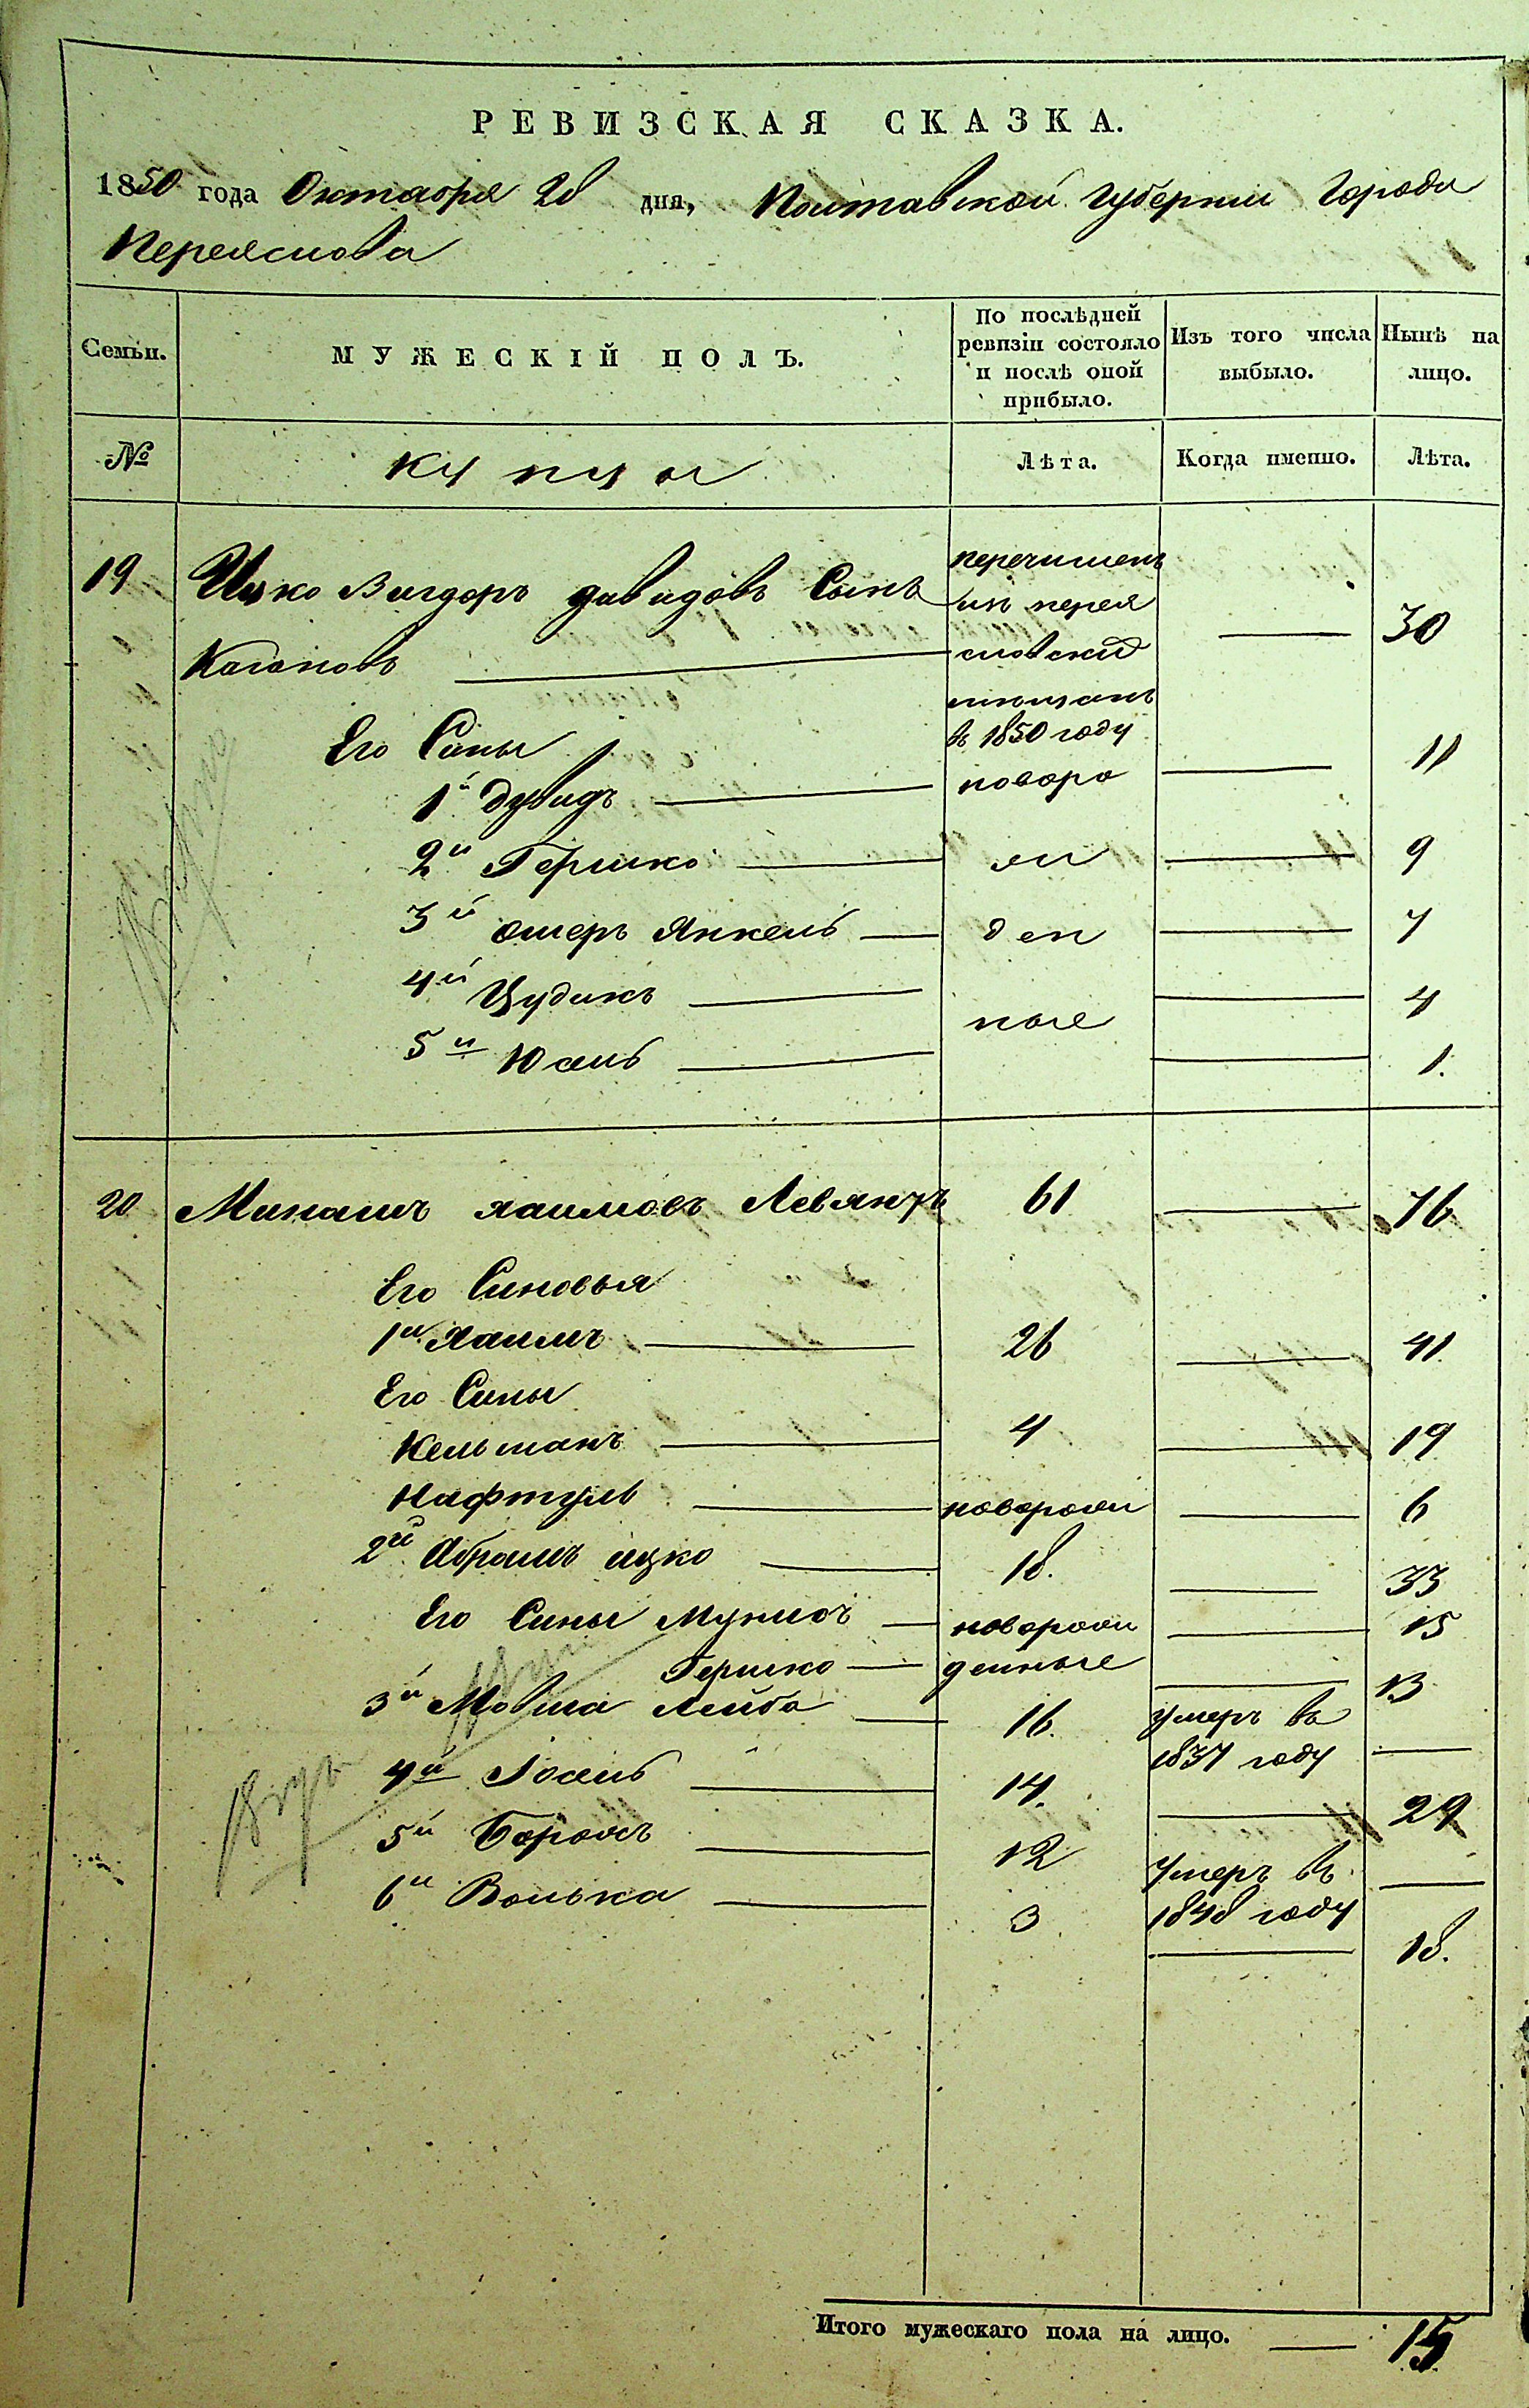 РЕВИЗСКАЯ СКАЗКА.
1850 года Октября 28 дня, Полтавской Губернии Города
Переяслова
Семьи. МУЖЕСКІЙ ПОЛЪ. По послѣдней ревизіи состояло и послѣ оной прибыло. Изъ того числа выбыло. Нынѣ на лицо.
№ Купцы Лѣта. Когда именно. Лѣта.
19 Ицко Вигдоръ Давидовъ Сынъ перечислен 30
Кагановъ изъ перея
словский
мещанъ
Его Сыны в 1850 году
1й Дувидъ новоро 11
2й Гершко ж 9
3й Ошеръ Янкель ден 7
4й Цудикъ ные 4
5й Юсель 1.
20 Манашъ Хаимовъ Левянтъ 61 76
Его Синовья
1й Хаимъ 26 41
Его Сины
Кельманъ 4 19
Нафтуль новорож 6
2й Абрамъ Ицко 18. 33
Его Сины новорож 15
Гершко денные 13
3й Мовша Лейба 16. умеръ въ
1837 году
4й Іосель 14. 29
5й Борохъ 12 умеръ въ
1848 году
6й Волька 3 18.
Итого мужескаго пола на лицо. 15